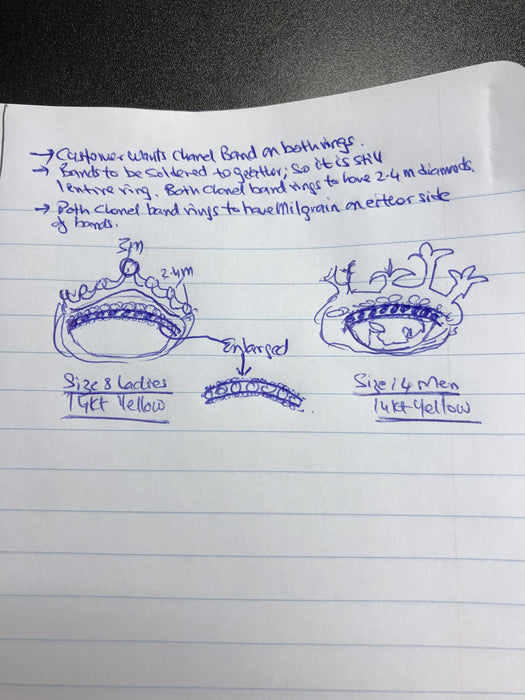 → Customer wants Chanel Band on both rings.
→ Bands to be Soldered together; So it is still
1 entire ring. Both Chanel band rings to have 2.4 m diamonds.
→ Both Chanel band rings to have Milgrain on either side
of bands.
3m
2.4m
Enlarged
Size 8 Ladies
14kt Yellow
Size 14 Men
14kt Yellow